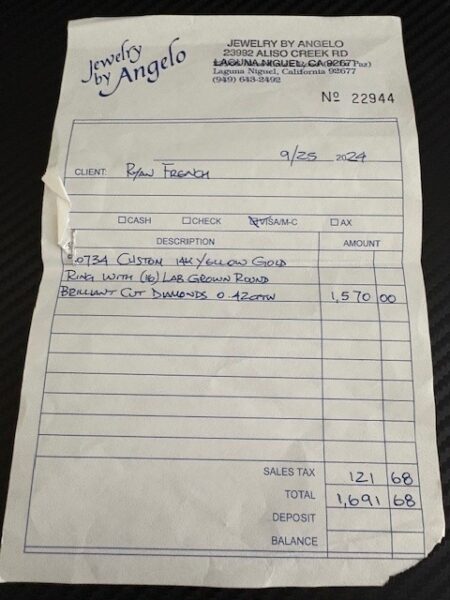 Jewelry by Angelo
JEWELRY BY ANGELO
23992 ALISO CREEK RD
LAGUNA NIGUEL, CA 92677
Paz)
Laguna Niguel, California 92677
(949) 643-2492
Nº 22944
9/25 2024
CLIENT: RYAN FRENCH
CASH CHECK VISA/M-C AX
DESCRIPTION AMOUNT
0734 CUSTOM 14K YELLOW GOLD
RING WITH (16) LAB GROWN ROUND
BRILLIANT CUT DIAMONDS 0.42CTTW 1,570 00
SALES TAX 121 68
TOTAL 1,691 68
DEPOSIT
BALANCE